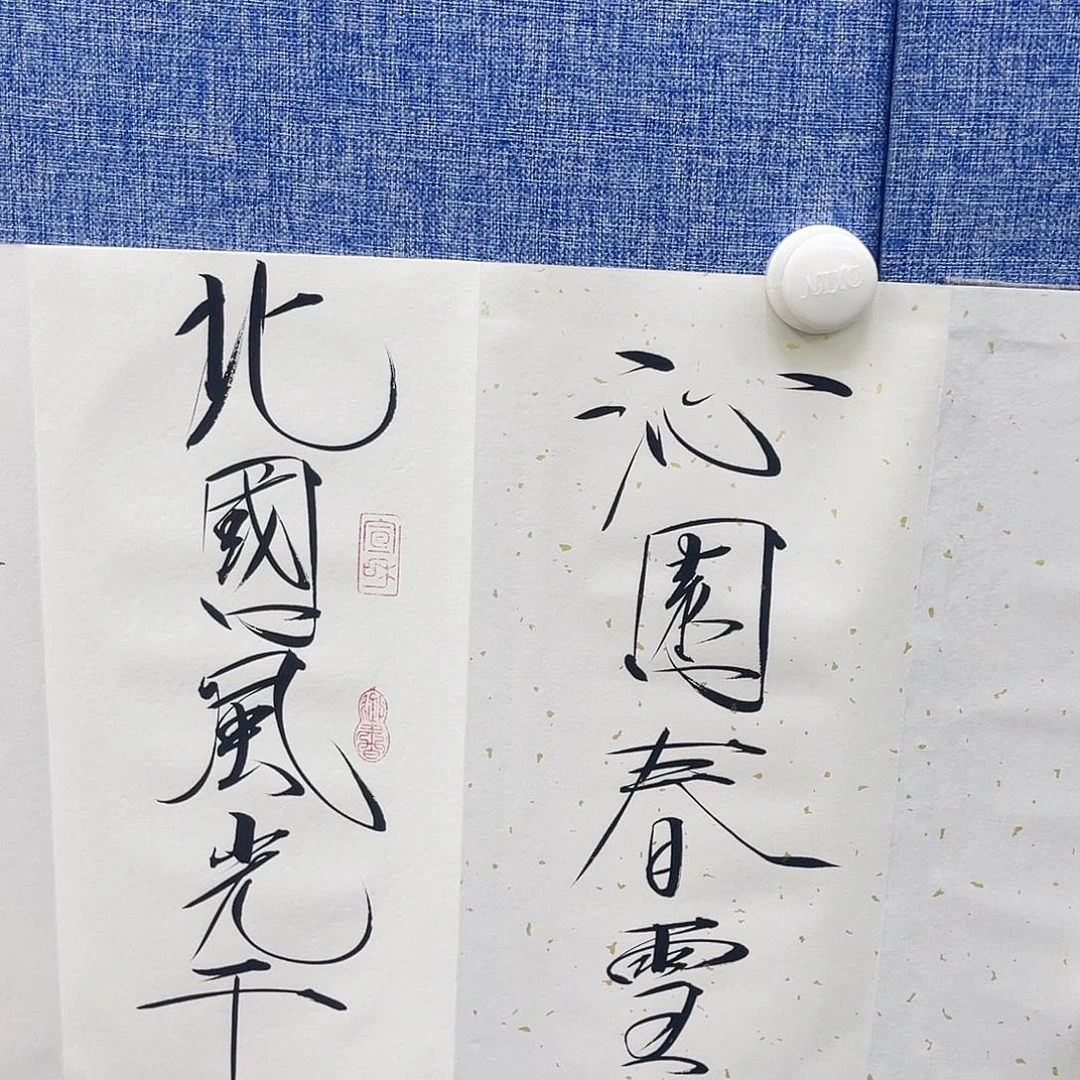 沁園春雪
北國風光千